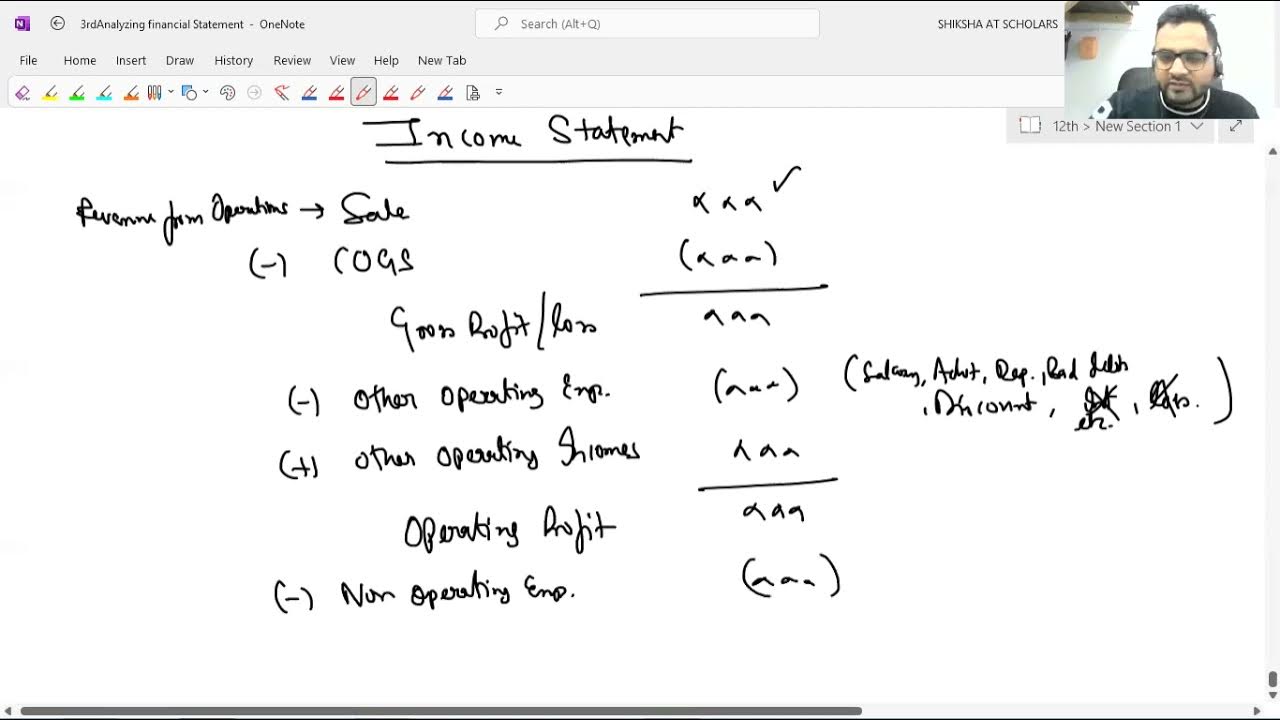 3rdAnalyzing financial Statement - OneNote
Search (Alt+Q)
SHIKSHA AT SCHOLARS
File Home Insert Draw History Review View Help New Tab
12th > New Section 1
Income Statement
Revenue from Operations → Sale ααα ✓
(-) COGS (ααα)
Gross Profit/loss ααα
(-) Other Operating Exp. (ααα) (Salary, Advt, Dep., Bad debts
, Discount, etc. )
(+) Other Operating Incomes ααα
Operating Profit ααα
(-) Non Operating Exp. (ααα)